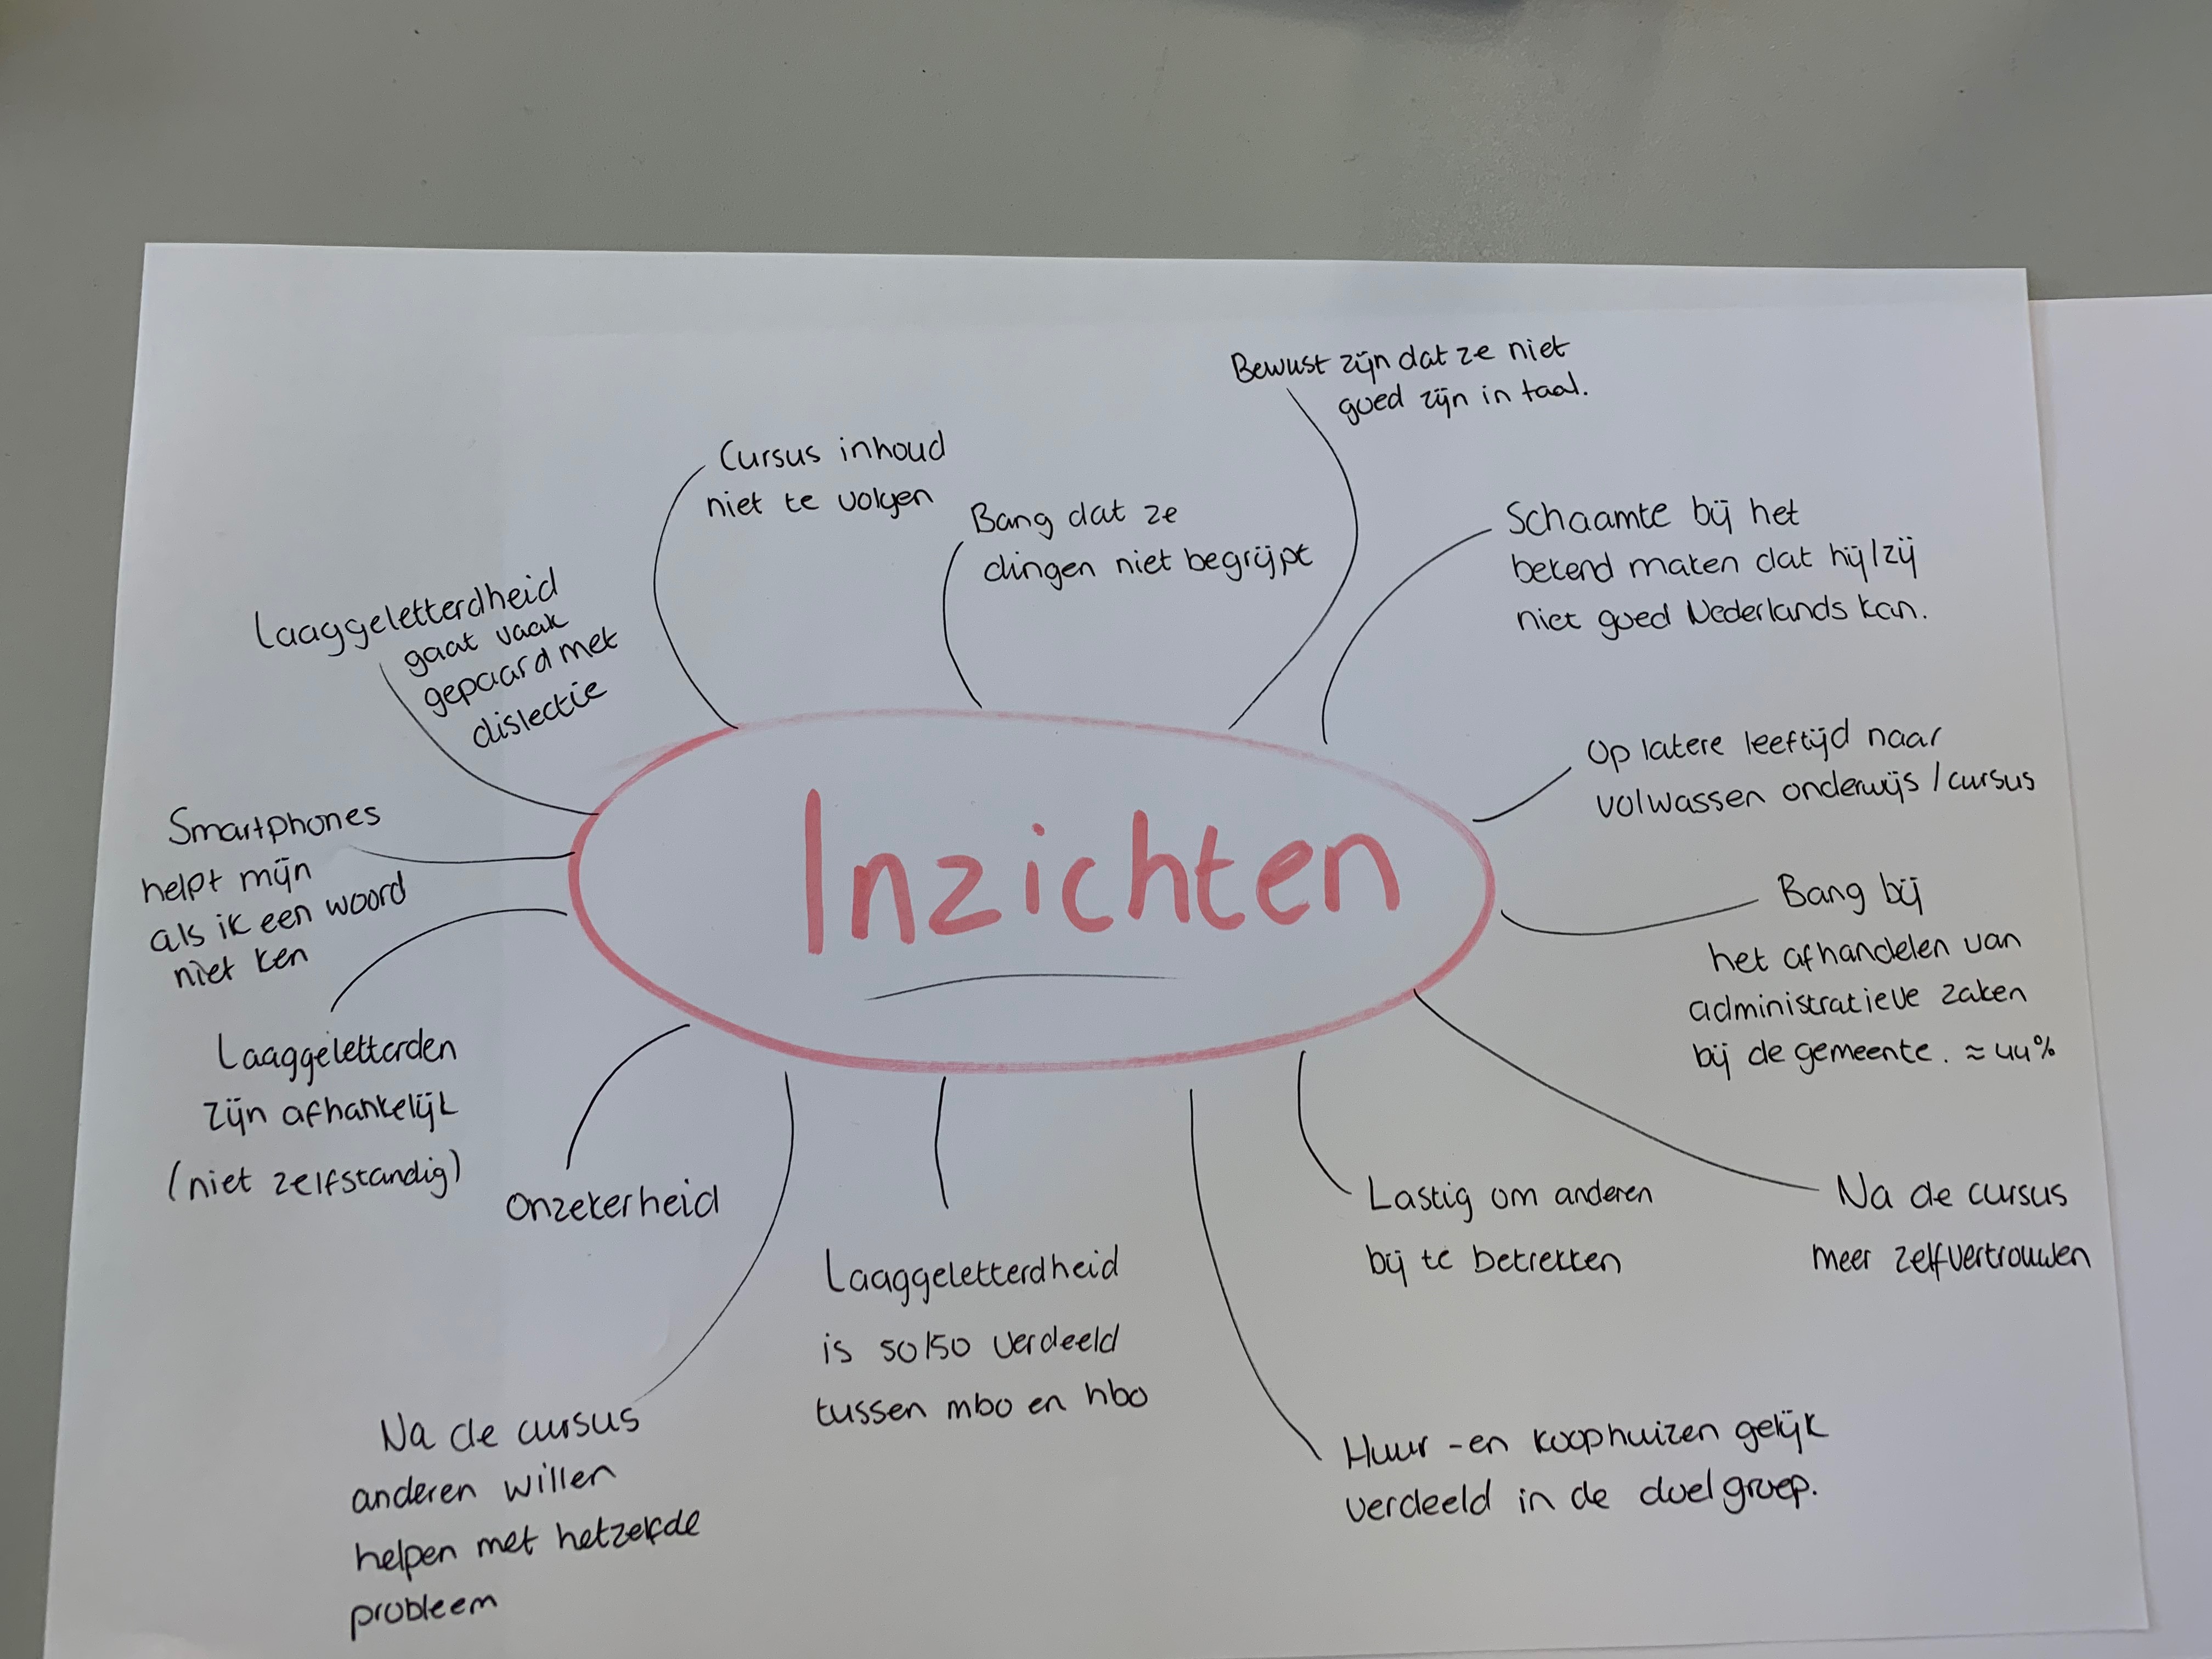 Inzichten
Laaggeletterdheid
gaat vaak
gepaard met
dislectie
Cursus inhoud
niet te volgen
Bang dat ze
dingen niet begrijpt
Bewust zijn dat ze niet
goed zijn in taal.
Schaamte bij het
bekend maken dat hij/zij
niet goed Nederlands kan.
Op latere leeftijd naar
volwassen onderwijs / cursus
Bang bij
het afhandelen van
administratieve zaken
bij de gemeente. ≈ 44%
Na de cursus
meer zelfvertrouwen
Lastig om anderen
bij te betrekken
Huur -en koophuizen gelijk
verdeeld in de doelgroep.
Laaggeletterdheid
is 50/50 verdeeld
tussen mbo en hbo
Na de cursus
anderen willen
helpen met hetzelfde
probleem
Onzekerheid
Laaggeletterden
zijn afhankelijk
(niet zelfstandig)
Smartphones
helpt mijn
als ik een woord
niet ken